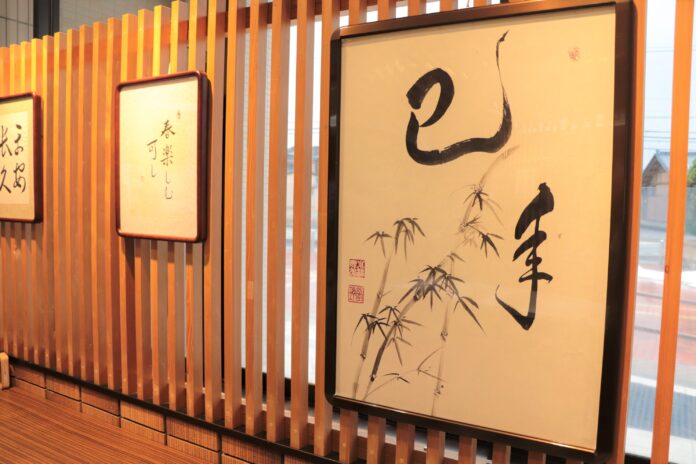 巳年
春楽しむ
可し
長久